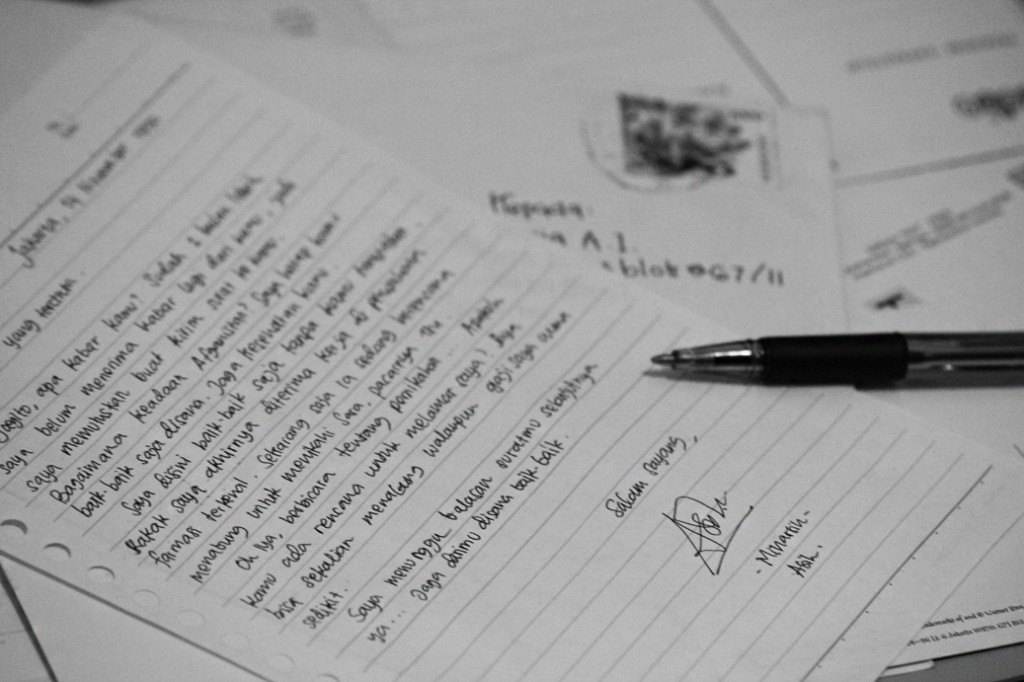 Jakarta, 14
yang tercinta.
Jogito, apa kabar kamu? Sudah 2 bulan lebih
saya belum menerima kabar lagi dari kamu, jadi
saya memutuskan buat kirim surat ke kamu.
Bagaimana keadaan Afganistan? Saya harap kamu
baik-baik saja disana. Jaga kesehatan kamu.
Saya disini baik-baik saja tanpa kamu
Kakak saya akhirnya diterima kerja di perusahaan
farmasi terkenal. Sekarang saja ia sedang berencana
menabung untuk menikahi Sara, pacarnya itu.
Oh iya, berbicara tentang pernikahan... Apakah
kamu ada rencana untuk melamar saya? Aku
bisa sekalian menabung walaupun gaji saya cuma
sedikit.
Saya menunggu balasan suratmu selanjutnya
ya... Jaga dirimu disana baik-baik.
Salam sayang,
- Mhartin -
Asih.
Kepada:
A. I.
blok G7/11